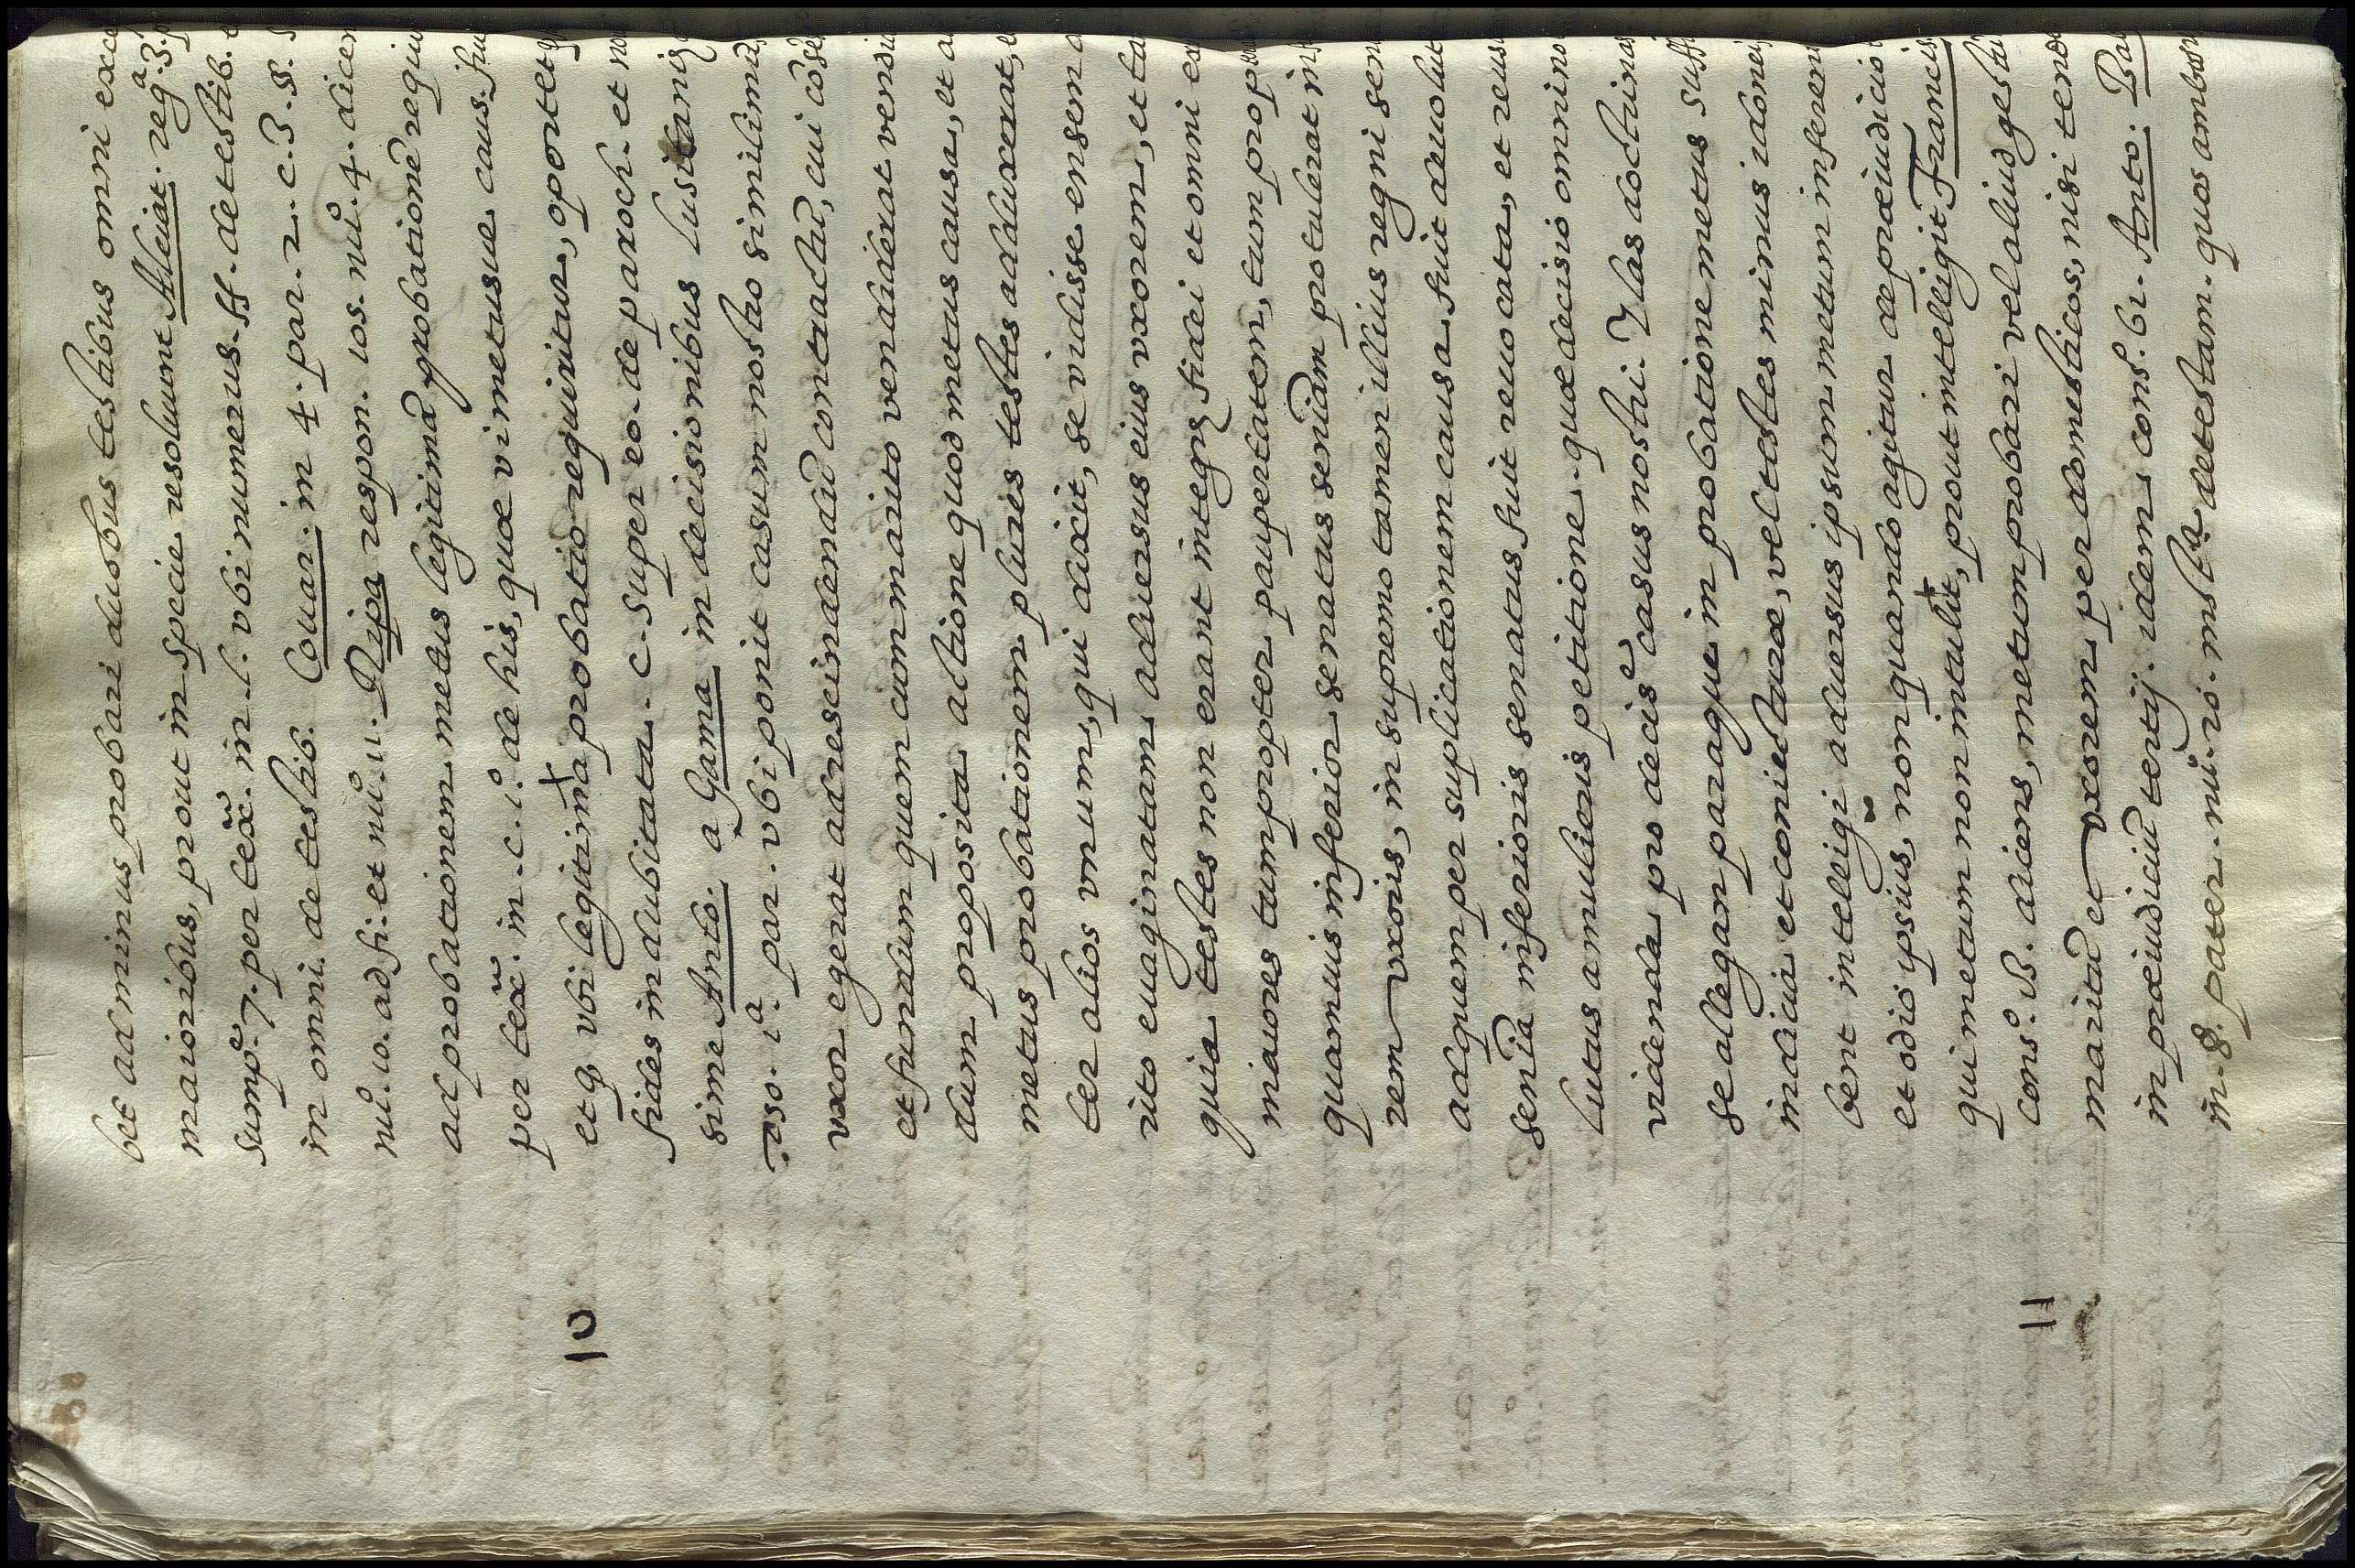 bet ad minus probari duobus testibus omni exce
maioribus, prout in specie resoluunt Alciat. regª. 3. p
sumpº. 7. per tex̃. in. l. vbi numerus. ff. de testib. e
in omni. de testib. Couar. in 4. par. 2. c. 3. §.
nuº. 10. ad fi. et nuº. 11. Ripa respon. 105. nuº. 4. dicen
ad probationem metus legitimã probationẽ requi
per tex̃. in. c. 1º. de his, quæ vi metusue caus. fiu
et q, vbi legitima probatio requiritur, oportet
10
fides indubitata. c. super eo. de paroch. et no
sime Anto. a Gama in decisionibus Lusitaniȩ
. 350. 1ª. par. vbi ponit casum nostro similimũ,
vxor egerat ad rescindendũ contractũ, cui cõse
et fundum quem cum marito vendiderat vendic
dum proposita actione quod metus causa, et a
metus probationem plures testes adduxerat, e
ter alios vnum, qui dixit, se vidisse ensem a
rito euaginatam aduersus eius vxorem, et ta
quia testes non erant integrȩ fidei et omni ex
maiores tum propter paupertatem, tum prop
quamuis inferior senatus sentiam protulerat in f
rem vxoris, in supremo tamen illius regni sen
ad quem per suplicationem causa fuit deuolut
sentia inferioris senatus fuit reuocata, et reus
lutus a mulieris petitione. quæ decisio omnino
videnda pro decisº casus nostri. Ylas doctrinas
se allegan para que in probatione metus suffi
indicia et coniecturæ, vel testes minus idonei
bent intelligi aduersus ipsum metum inferent
et odio ipsius, non quando agitur de præiudicio
qui metum non intulit, prout intelligit Francis.
cons. dicens, metum probari vel aliud gestũ
11
maritũ et vxorem per domesticos, nisi tende
in præiudiciũ tertij. idem consº. 61. Anto. Ba
in §. pater. nuº. 10. instª. de testam. quos ambo